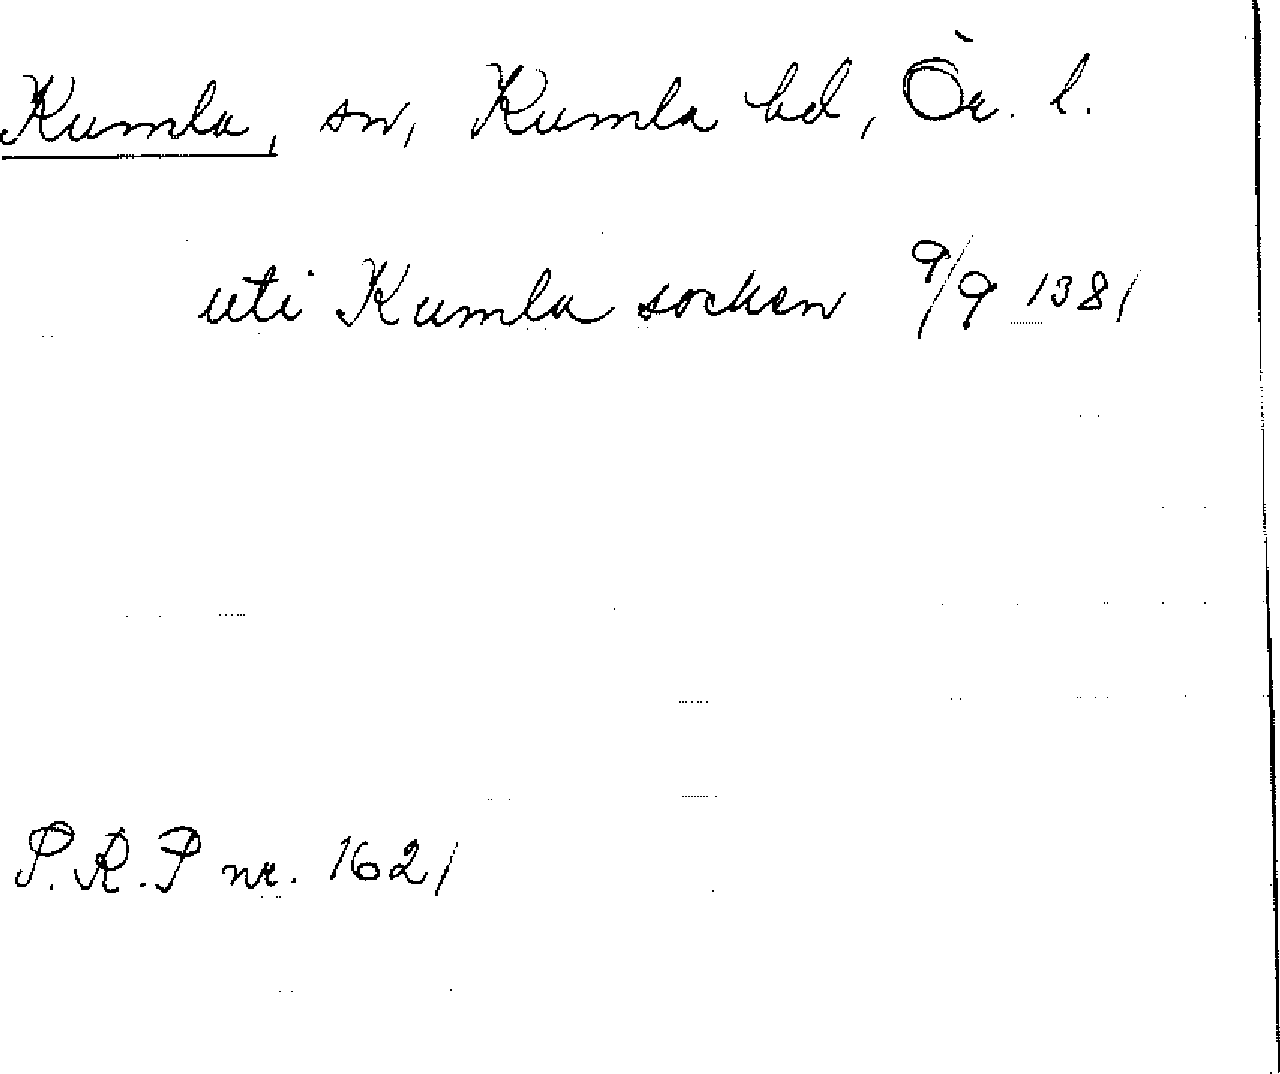 Kumla, sn, Kumla hd, Ör. l.
uti Kumla socken 9/9 1381
P.R.P nr. 1621